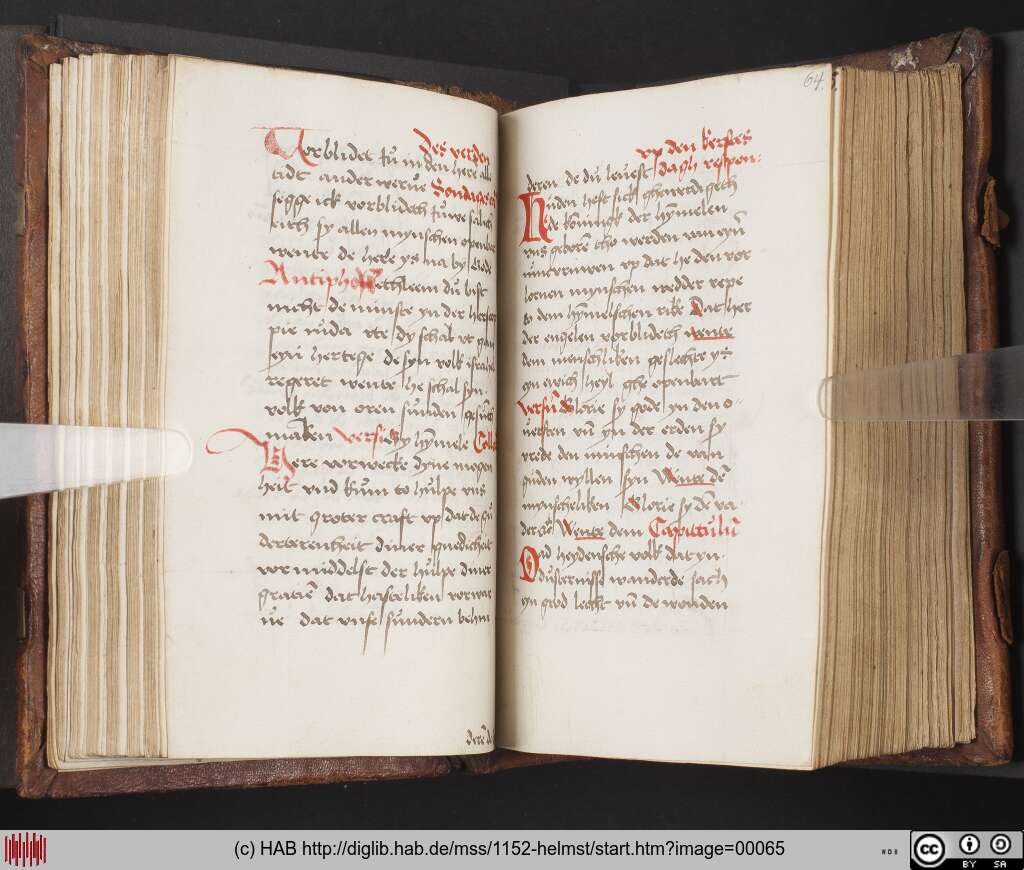 Des verden
Vorblidet ju in den here alle
tidt anderwerue Sondages
segge ick vorblidech juwe salich
eith sy allen mynschen openbar
wente de here ys na by Bede
Antiphon Bethleem du bist
nicht de minste yn der hersch
pie iuda vte dy schal vt gan
eyn hertege de syn volk israhel
regeret wente he schal syn
volk von oren sunden gesunt
maken versus By hymele Coll
Here vorwecke dyne mogen
heit vnd kum to hulpe vns
mit groter craft vp dat de
 diner gnedicheit
vormiddelst der hulpe diner
gracien dat hasteliken vorwar
ue dat vnse sundern behin
dere de
64.
vp den kerstes
deren de du leuest dagh respon:
Huden heft sick ghewerdigeth
de konningk der hymelen
vns geboren tho werden van eyner
iuncfruwen vp dat he den vor
lornen mynschen wedder repe
to dem hymelschen rike Dat her
der engelen vorblidech wente
dem menschliken geslechte ys
eyn ewich heyl ghe openbart
versus Glorie sy gode yn den o
uersten vnd yn der erden sy
vrede den minschen de van
guden wyllen syn Wente dem
mynscheliken Glorie sy dem va
dere Wente dem Capittulum
Dad heydensche volk dat yn
dusternisse wanderde sach
eyn grod lecht vnd de wonden
(c) HAB http://diglib.hab.de/mss/1152-helmst/start.htm?image=00065
WDB
cc BY SA